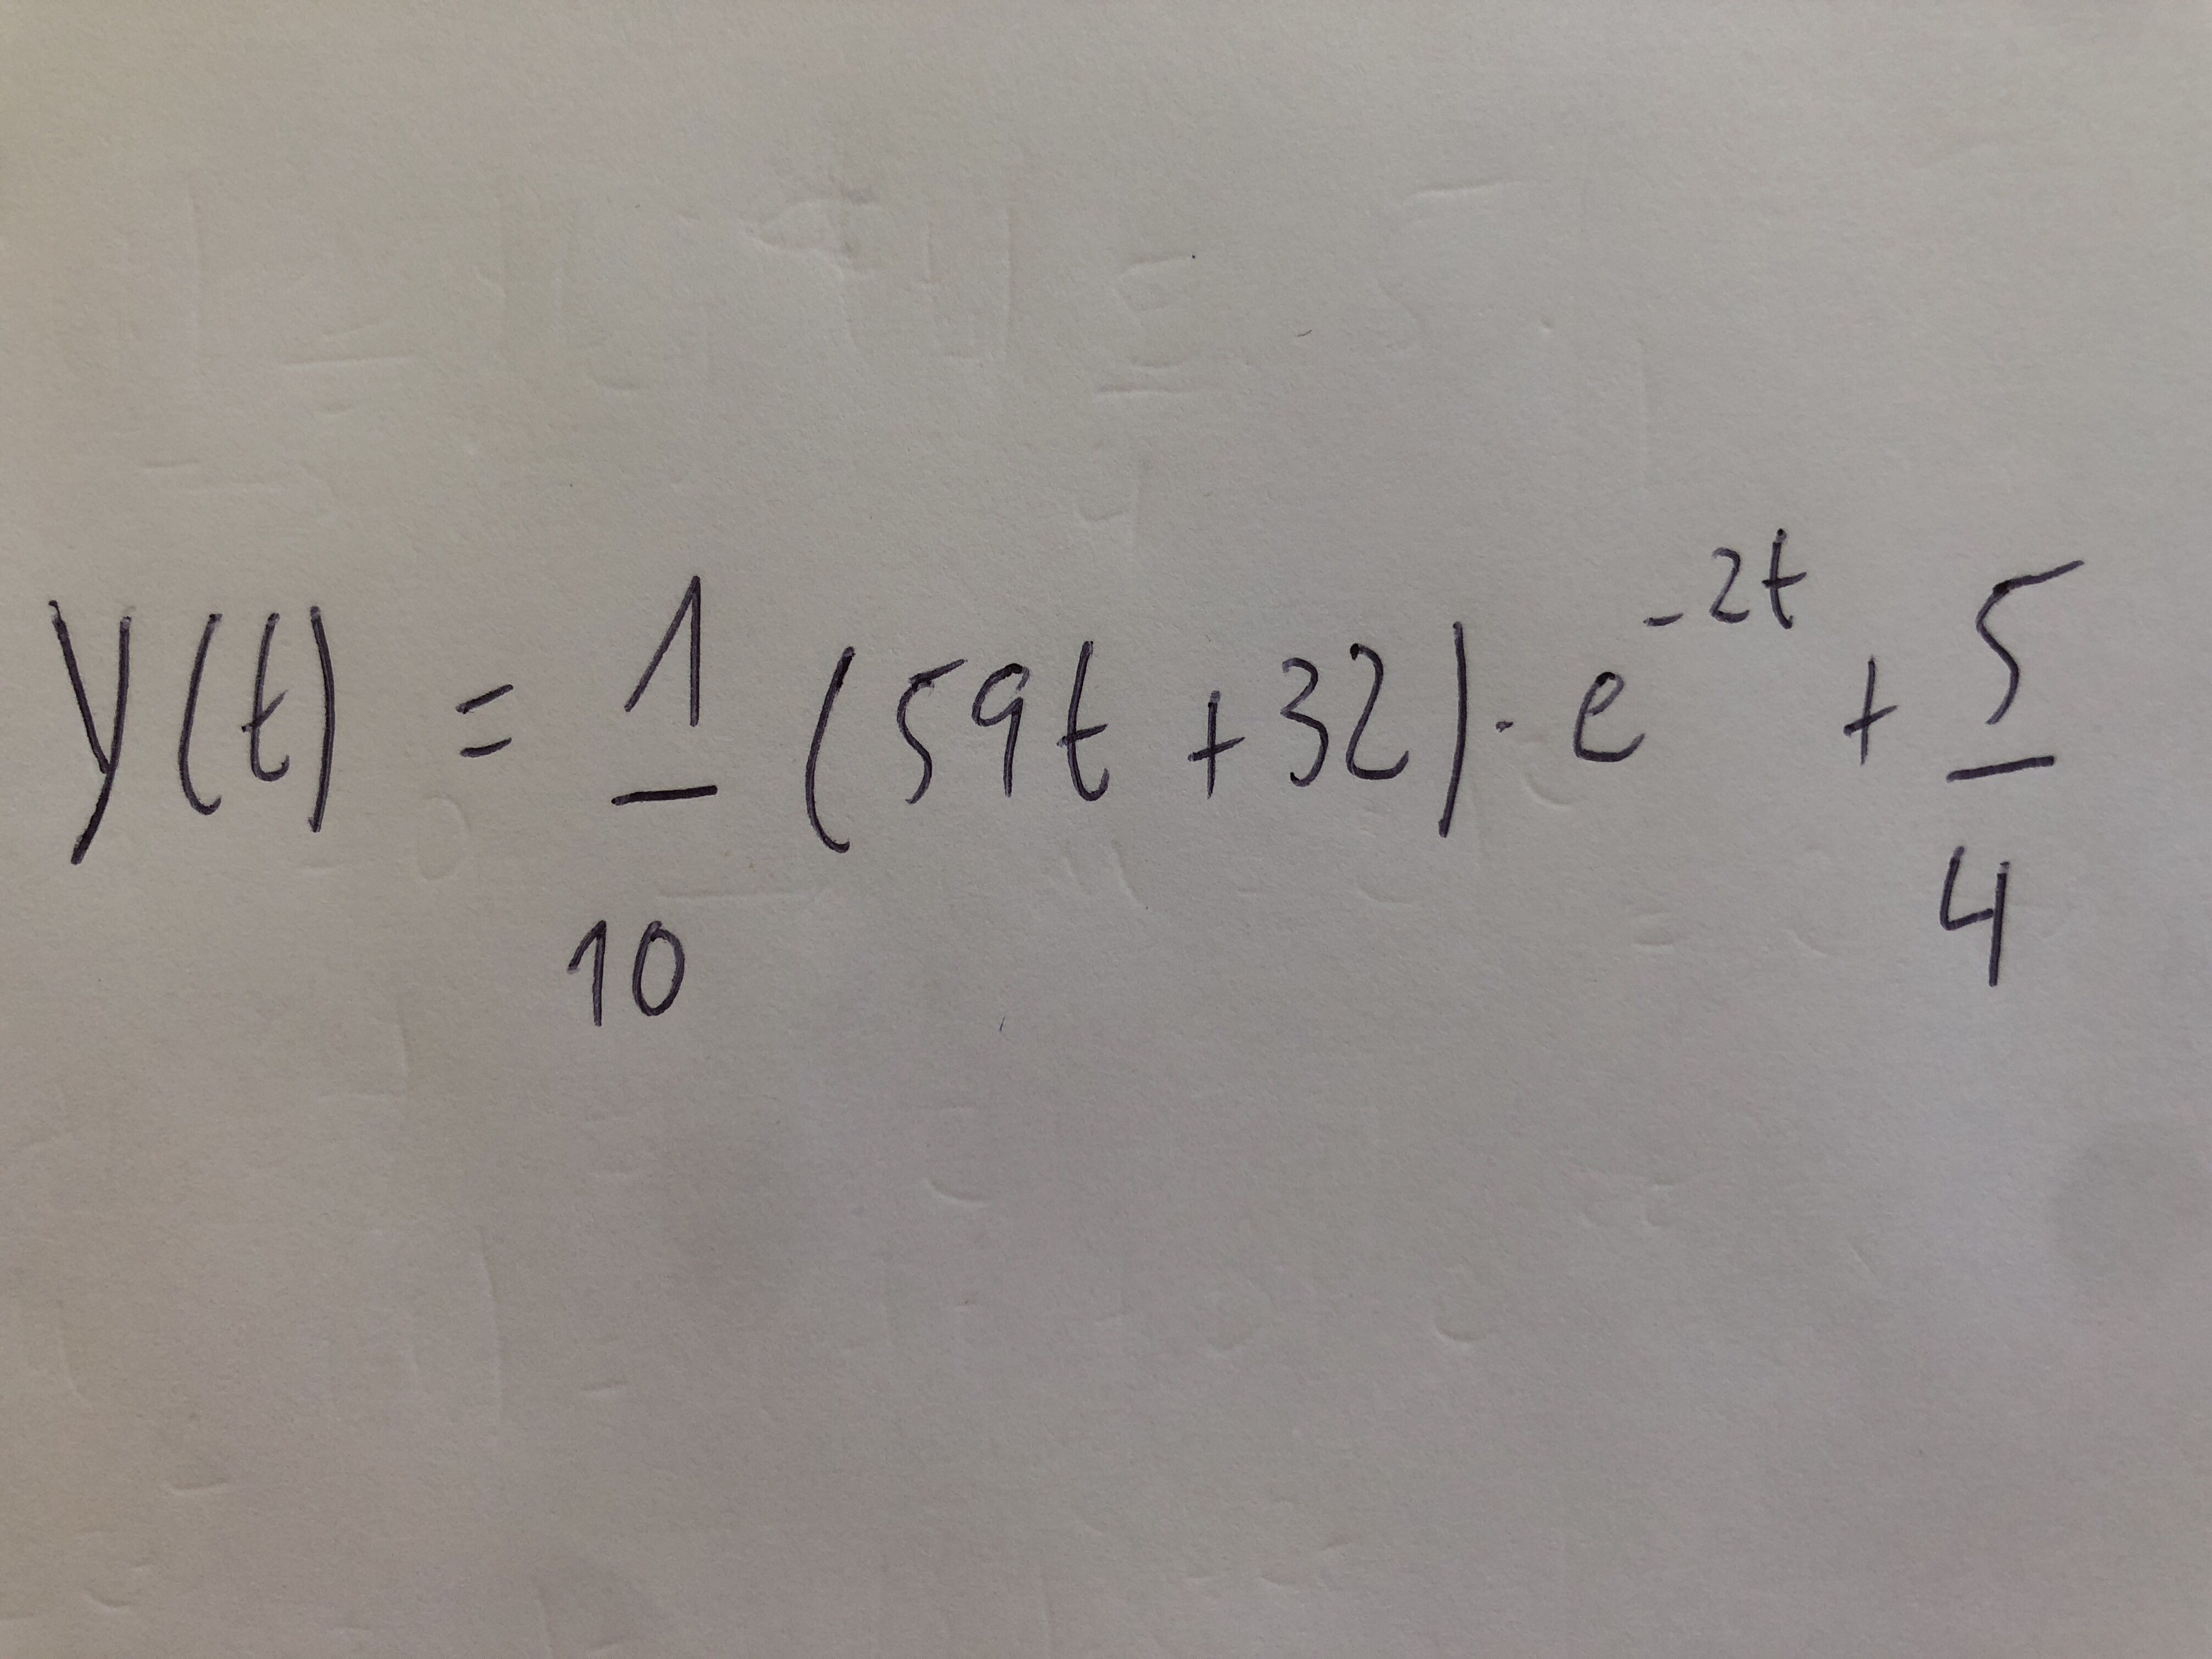 y(t) = 1/10 (59t + 32) · e^{-2t} + 5/4